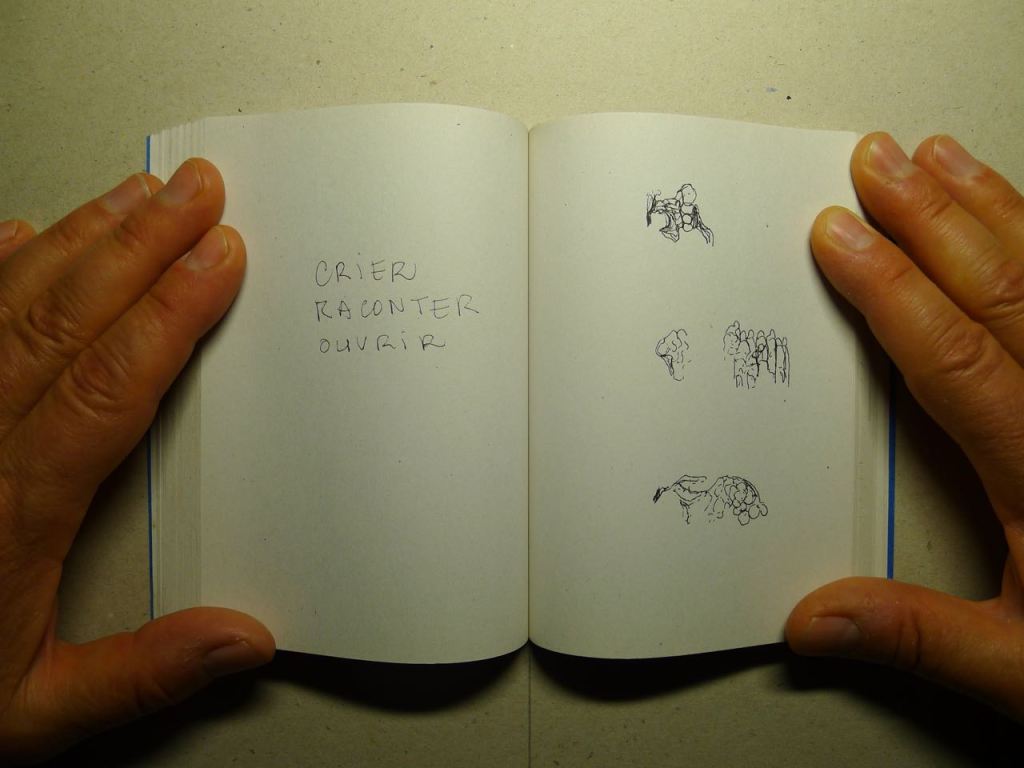 CRIER
RACONTER
OUVRIR